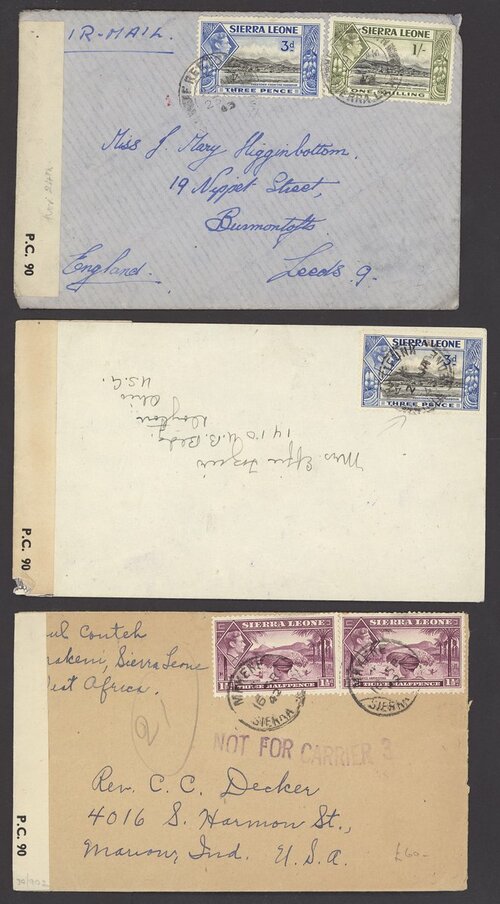 IR-MAIL.
SIERRA LEONE
3d
THREE PENCE
SIERRA LEONE
1/-
ONE SHILLING
Miss J. Mary Higginbottom.
19 Nippet Street,
Burmontofts
England.
Leeds 9.
P.C. 90
SIERRA LEONE
3d
THREE PENCE
Mrs. Effie
1410 U.B. Bldg.
Dayton
Ohio
U.S.A.
P.C. 90
ul Conteh
akeni, Sierra Leone
est Africa.
2/-
SIERRA LEONE
1½d
THREE HALFPENCE
SIERRA LEONE
1½d
THREE HALFPENCE
SIERRA
SIERRA
NOT FOR CARRIER 3
Rev. C. C. Decker
4016 S. Harmon St.,
Marion, Ind. U.S.A.
£60-
P.C. 90